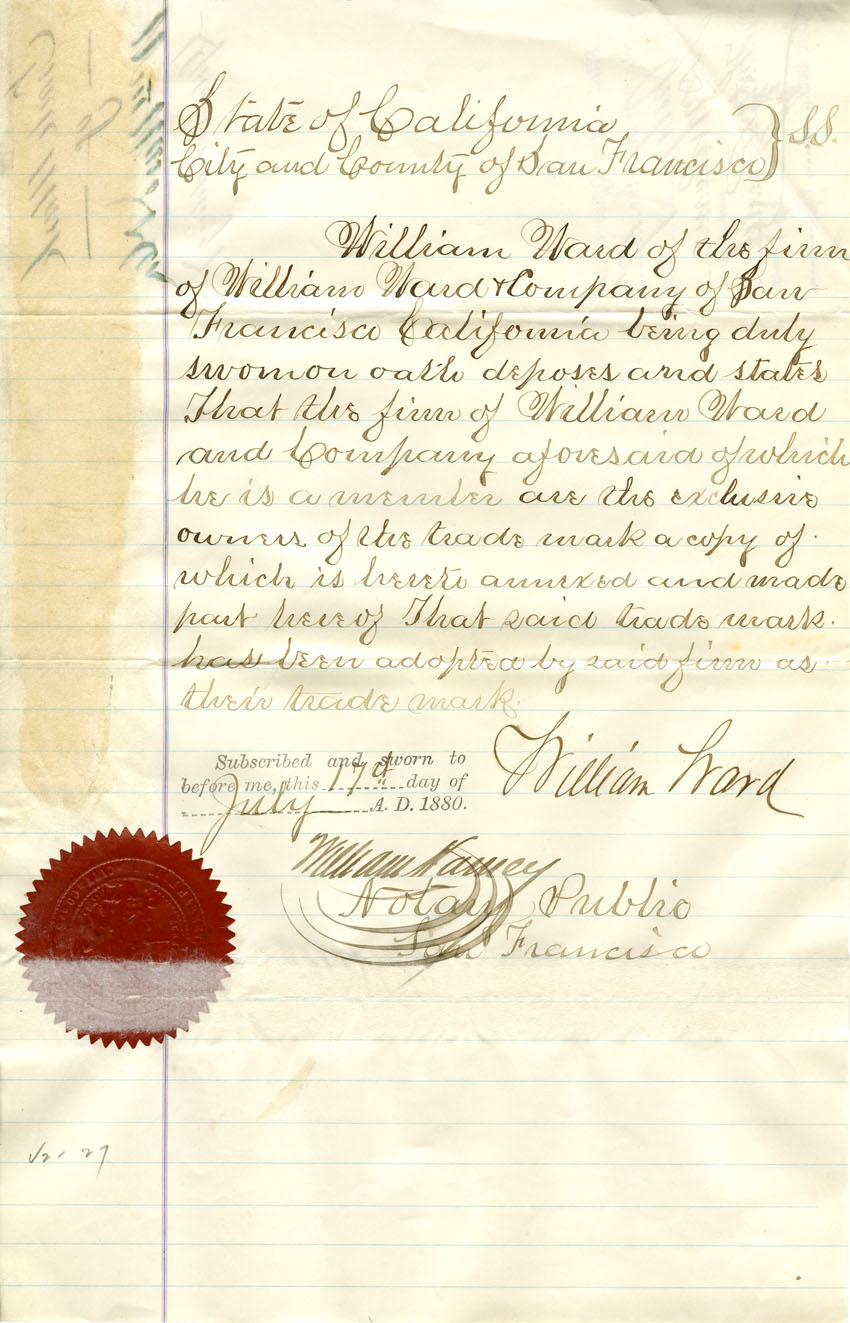 State of California } SS.
City and County of San Francisco
William Ward of the firm
of William Ward & Company of San
Francisco California being duly
sworn on oath deposes and states
That the firm of William Ward
and Company aforesaid of which
he is a member are the exclusive
owners of the trade mark a copy of
which is hereto annexed and made
part hereof That said trade mark
has been adopted by said firm as
their trade mark.
Subscribed and sworn to
before me, this 17th day of
July A. D. 1880.
William Ward
William
Notary Public
San Francisco